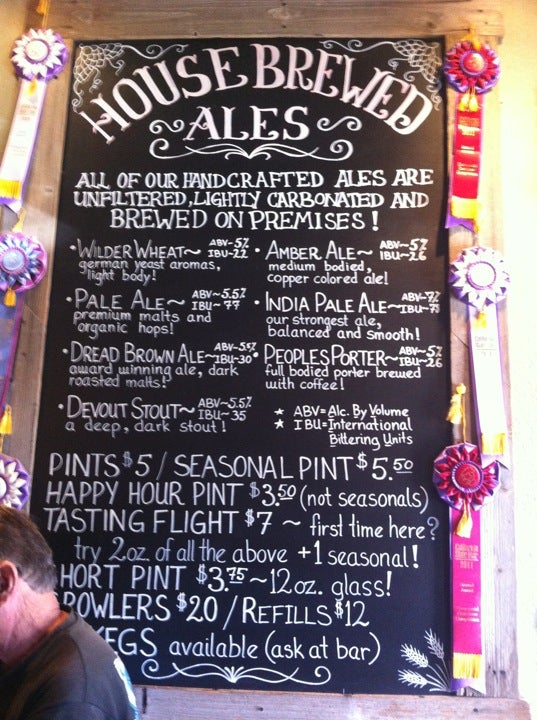 HOUSE BREWED
ALES
ALL OF OUR HANDCRAFTED ALES ARE
UNFILTERED, LIGHTLY CARBONATED AND
BREWED ON PREMISES!
• WILDER WHEAT~ ABV~5% IBU~22
german yeast aromas,
light body!
• AMBER ALE~ ABV~5% IBU~26
medium bodied,
copper colored ale!
• PALE ALE~ ABV~5.5% IBU~77
premium malts and
organic hops!
• INDIA PALE ALE~ ABV~7% IBU~75
our strongest ale,
balanced and smooth!
• DREAD BROWN ALE~ ABV~5.5% IBU~30
award winning ale, dark
roasted malts!
• PEOPLES PORTER~ ABV~5% IBU~26
full bodied porter brewed
with coffee!
• DEVOUT STOUT~ ABV~5.5% IBU~35
a deep, dark stout!
★ ABV=Alc. By Volume
★ IBU=International
Bittering Units
PINTS $5 / SEASONAL PINT $5.50
HAPPY HOUR PINT $3.50 (not seasonals)
TASTING FLIGHT $7 ~ first time here?
try 2oz. of all the above +1 seasonal!
HORT PINT $3.75~12oz. glass!
ROWLERS $20 / REFILLS $12
KEGS available (ask at bar)